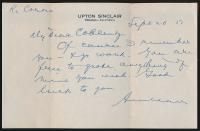 UPTON SINCLAIR
Sept 20
My dear Coblentz
Of course I remember
you & yr work. You are
free to quote anything of
mine you wish. Good
luck to you